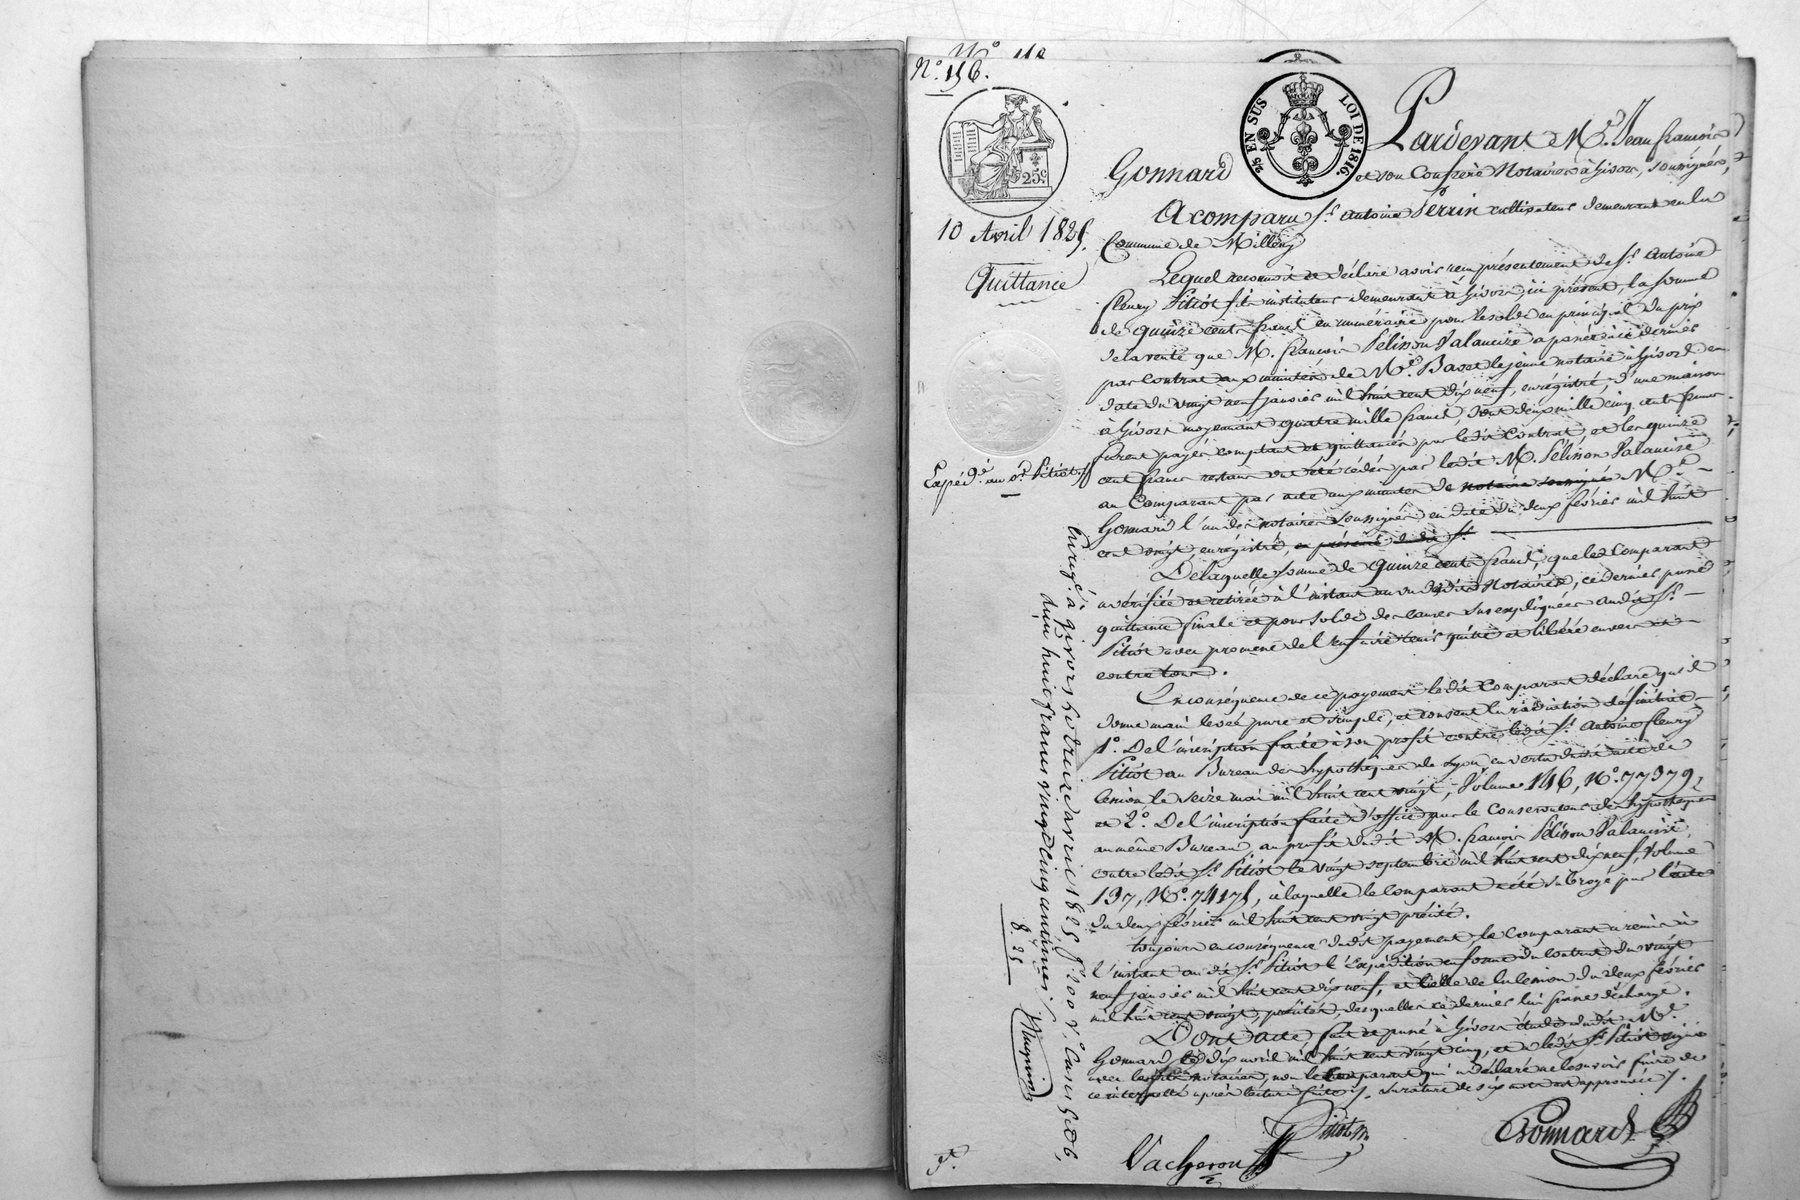 N.° 156.
25c
2/5 EN SUS LOI DE 1816.
10 Avril 1825.
Quittance
Expéd.é au s.r Pitiot
Pardevant M.e Jean françois
Gonnard et son Confrère Notaires à Givors, soussignés,
A comparu s.r antoine Perrin cultivateur demeurant en la
Commune de Millery
Lequel reconnoit et déclare avoir reçu présentement de s.r antoine
fleury Pitiot fils instituteur demeurant à Givors, ici présent, la somme
de quinze cents francs en numéraire pour le solde en principal du prix
de la vente que M. françois Pélisson Valancize a passée à ce dernier
par contrat aux minutes de M.e Bavet le jeune notaire à Givors en
date du vingt neuf janvier mil huit cent dix neuf, enregistré, d'une maison
à Givors moyennant quatre mille francs, dont deux mille cinq cents francs
furent payés comptant et quittancés par ledit Contrat, et les quinze
cent francs restans ont été cédés par ledit M. Pélisson Valancize
au Comparant par acte aux minutes de notaire soussigné M.e
Gonnard l'un des notaires soussignés en date du deux février mil huit
cent vingt, enregistré, en présence dudit s.r
De laquelle somme de quinze cents francs, que le Comparant
a vérifiée et retirée à l'instant au vu desdits Notaires, ce dernier passe
quittance finale et pour solde des causes sus expliquées audit s.r
Pitiot avec promesse de l'en faire tenir quitte et libéré envers et
contre tous.
En conséquence de ce payement ledit Comparant déclare qu'il
donne main levée pure et simple, et consent la radiation définitive
1.° De l'inscription faite à son profit contre ledit s.r antoine fleury
Pitiot au Bureau des hypothèques de Lyon en vertu dudit acte de
cession le seize mai mil huit cent vingt, Volume 146, N.° 77379,
et 2.° De l'inscription faite d'office par le Conservateur des hypothèques
au même Bureau, au profit dudit M. françois Pélisson Valancize
contre ledit s.r Pitiot le vingt septembre mil huit cent dix neuf, Volume
137, N.° 74175, à laquelle le comparant a été subrogé par l'acte
du deux février mil huit cent vingt précité.
Toujours en conséquence dudit payement le Comparant a remis à
l'instant au dit s.r Pitiot l'Expédition en forme du contrat du vingt
neuf janvier mil huit cent dix neuf, et celle de la cession du deux février
mil huit cent vingt, précitées, desquelles ce dernier lui passe décharge.
Dont acte, fait et passé à Givors étude dudit M.e
Gonnard le dix avril mil huit cent vingt cinq, et a ledit s.r Pitiot signé
avec lesdits notaires, non le Comparant qui a déclaré ne le savoir faire de
ce interpellé après lecture faite. rature de six mots approuvée
Pitiot
Gonnard
Vacheron
Enreg.é à givors le treize avril 1825 f.° 100 v.° Cases 5 et 6,
reçu huit francs vingt cinq centimes.
8.25